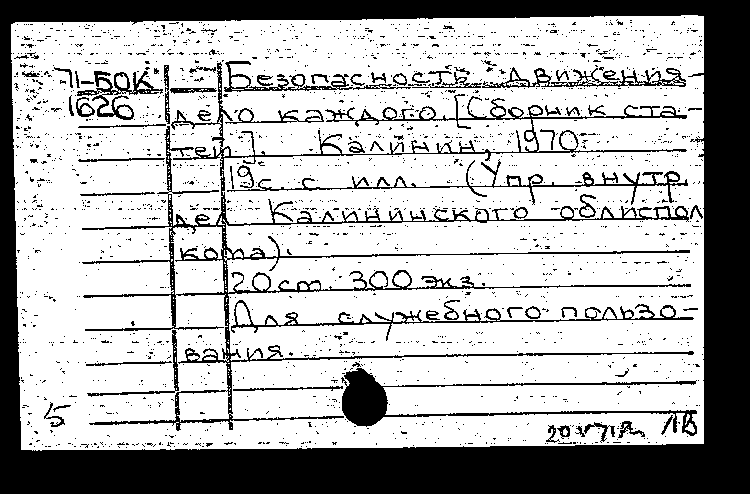 71-БОК Безопасность движения -
1626 дело каждого. [Сборник ста-
тей]. Калинин, 1970.
19с. с илл. (Упр. внутр.
дел Калининского облиспол
кома).
20 см. 300 экз.
Для служебного пользо-
вания.
5
20 V 71 ЛВ